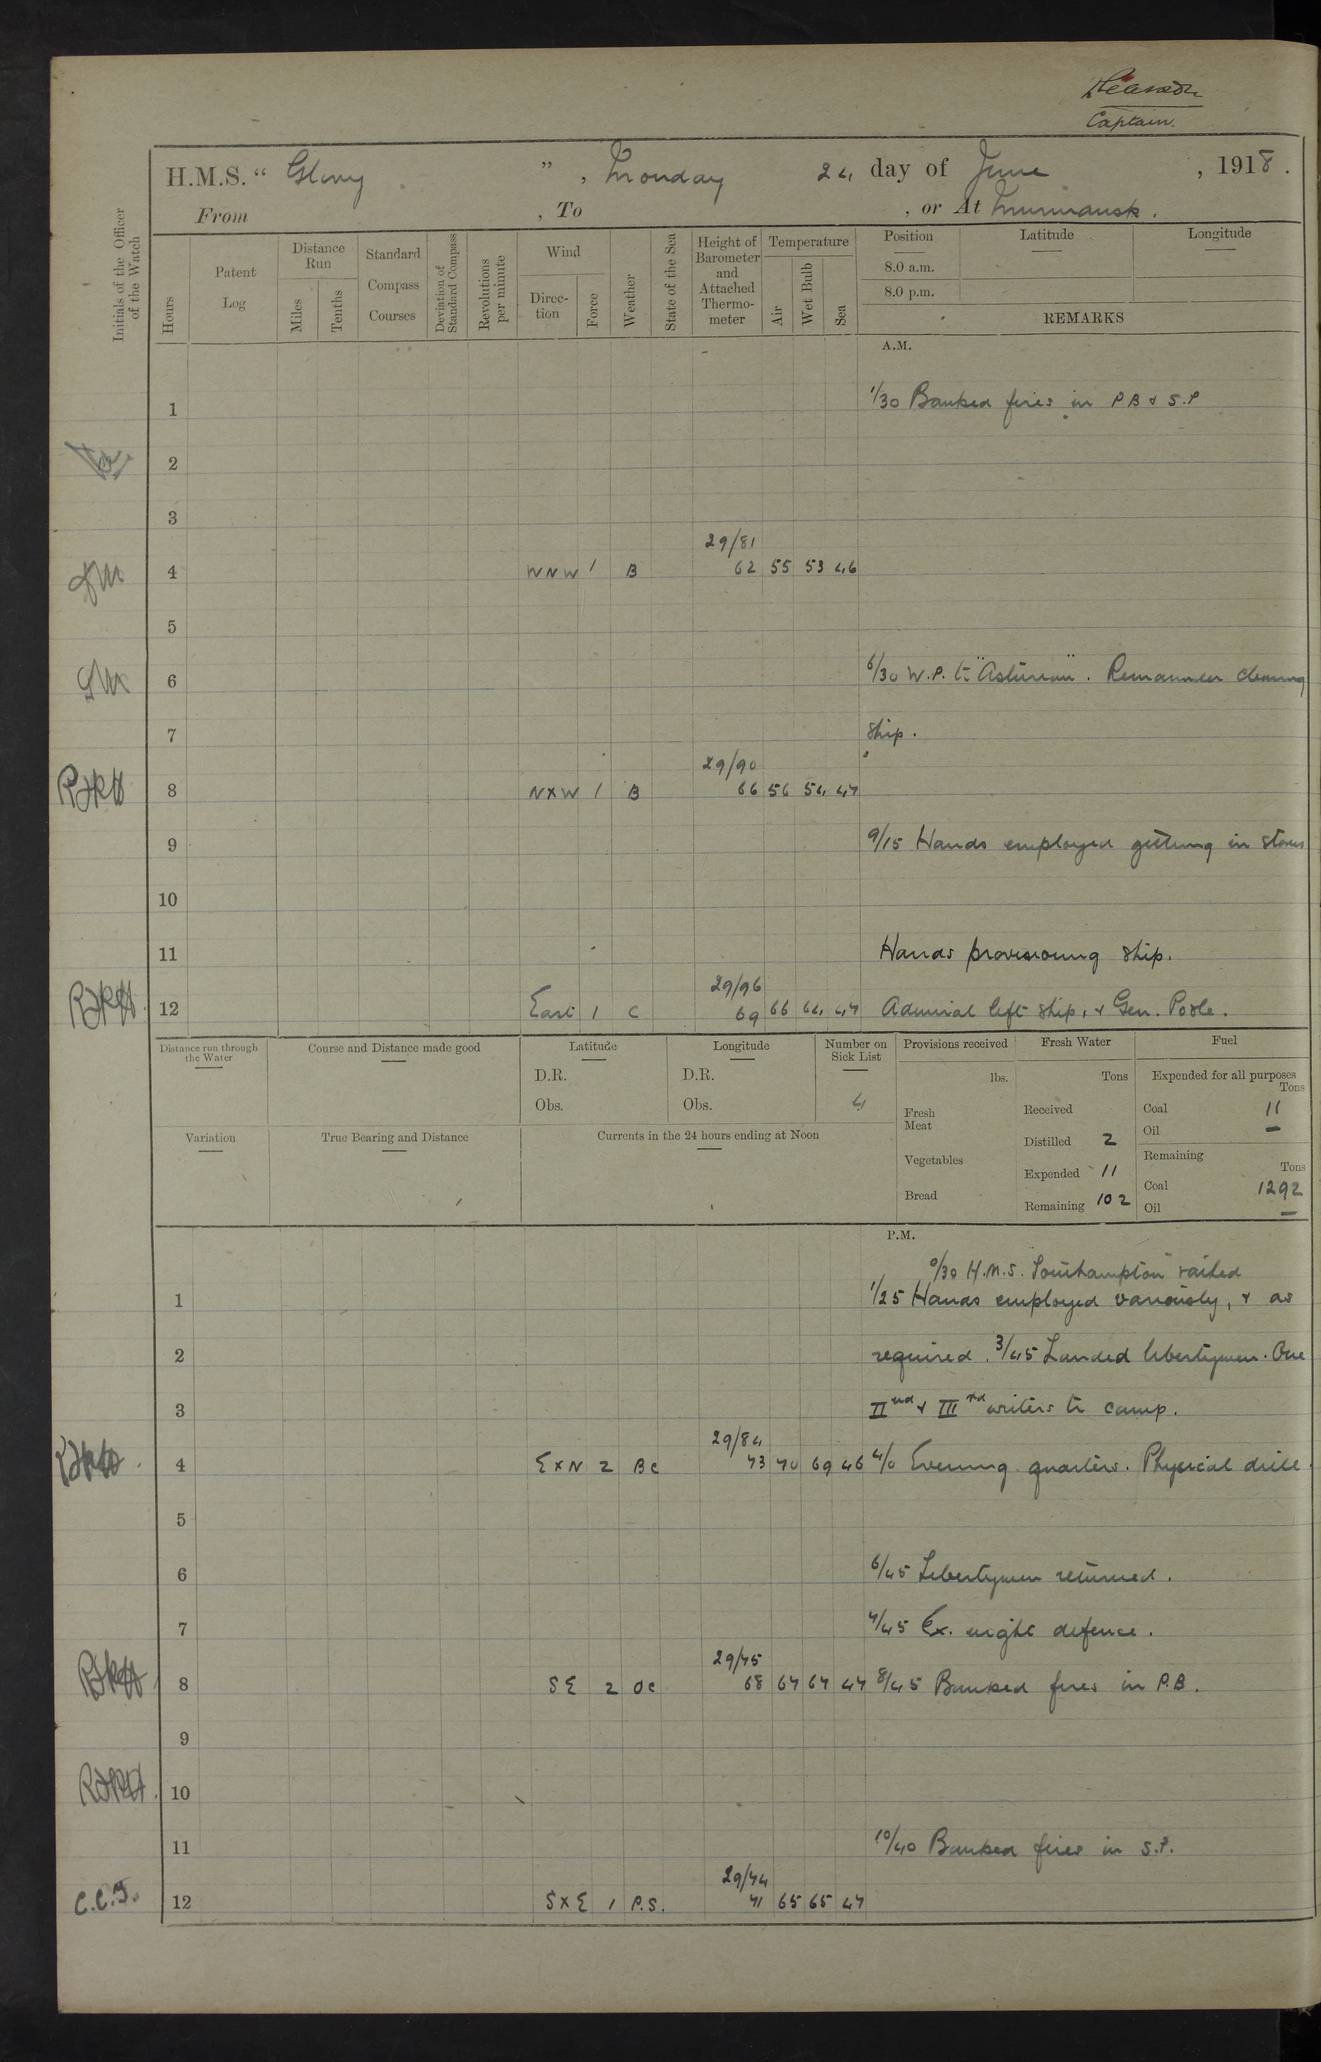 Captain.
H.M.S. “ Glory ”, Monday 24 day of June , 1918.
From , To , or At Murmansk.
Initials of the Officer of the Watch
Hours
Patent Log
Distance Run
Miles
Tenths
Standard Compass Courses
Deviation of Standard Compass
Revolutions per minute
Wind
Direc-tion
Force
Weather
State of the Sea
Height of Barometer and Attached Thermo-meter
Temperature
Air
Wet Bulb
Sea
Position
8.0 a.m.
8.0 p.m.
Latitude
Longitude
REMARKS
A.M.
1 1/30 Banked fires in P B & S.P
2
3
29/81
4 WNW 1 B 62 55 53 46
5
6 6/30 W.P. to "Asturian". Remainder cleaning
7 ship.
29/90
8 N×W 1 B 66 56 54 47
9 9/15 Hands employed getting in stores
10
11 Hands provisioning ship.
29/96
12 East 1 C 69 66 64 47 Admiral left ship, & Gen. Poole.
Distance run through the Water
Course and Distance made good
Latitude
D.R.
Obs.
Longitude
D.R.
Obs.
Number on Sick List
4
Provisions received
lbs.
Fresh Meat
Vegetables
Bread
Fresh Water
Tons
Received
Distilled 2
Expended 11
Remaining 102
Fuel
Expended for all purposes
Tons
Coal 11
Oil —
Remaining
Tons
Coal 1292
Oil —
Variation
True Bearing and Distance
Currents in the 24 hours ending at Noon
P.M.
0/30 H.M.S. Southampton sailed
1 1/25 Hands employed variously, & as
2 required. 3/45 Landed libertymen. One
3 IInd & IIIrd writers to camp.
29/84
4 E×N 2 BC 73 70 69 46 4/0 Evening quarters. Physical drill.
5
6 6/45 Libertymen returned.
7 7/45 Ex. night defence.
29/75
8 SE 2 OC 68 67 67 47 8/45 Banked fires in P.B.
9
10
11 10/40 Banked fires in S.P.
29/74
C.C.J. 12 S×E 1 P.S. 71 65 65 47